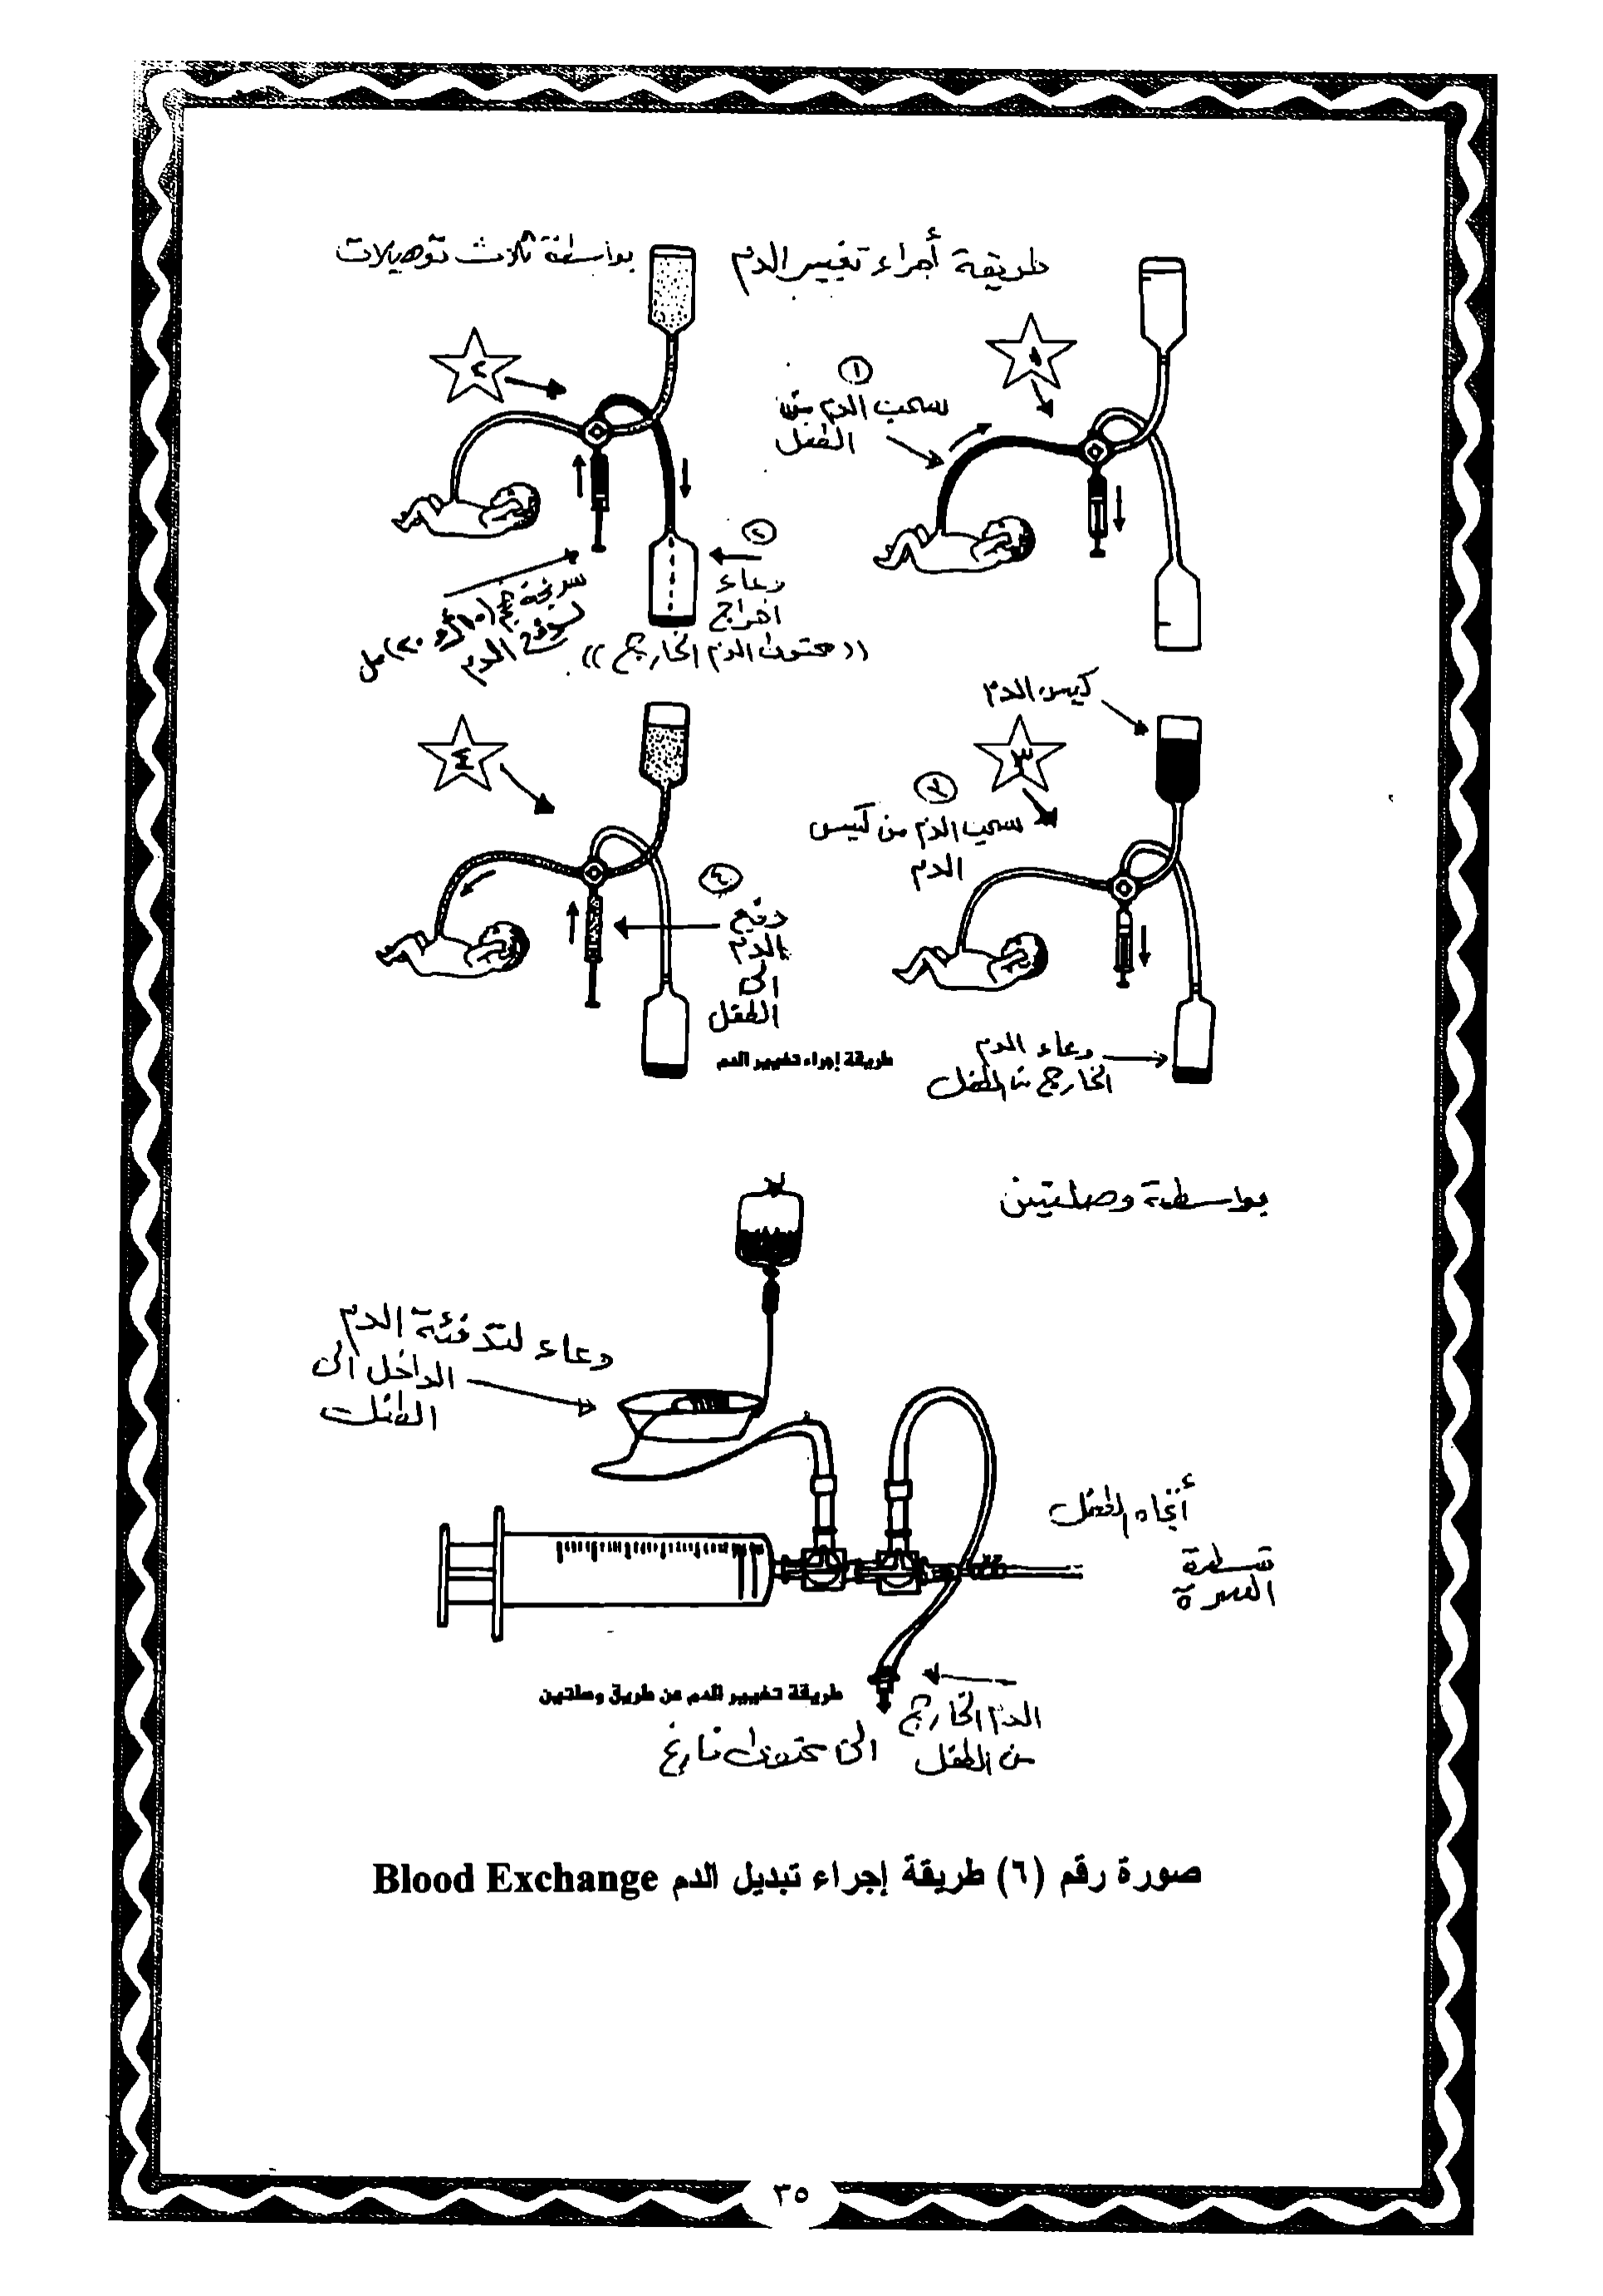 طريقة أجراء تغيير الدم بواسطة ثلاث توصيلات
١
١
سحب الدم من
الطفل
٢
٢
وعاء
اخراج
((محتويات الدم الخارج))
سرنجة
(١٠ أو ٢٠) مل
الدم
٣
كيس الدم
٣
سحب الدم من كيس
الدم
وعاء الدم
الخارج من الطفل
٤
٤
دفع
الدم
الى
الطفل
طريقة إجراء تغيير الدم
بواسطة وصلتين
وعاء لتدفئة الدم
الداخل الى
الطفل
أتجاه الطفل
قسطرة
السرة
الدم الخارج
من الطفل
الى فارغ
طريقة تغيير الدم عن طريق وصلتين
صورة رقم (٦) طريقة إجراء تبديل الدم Blood Exchange
٣٥